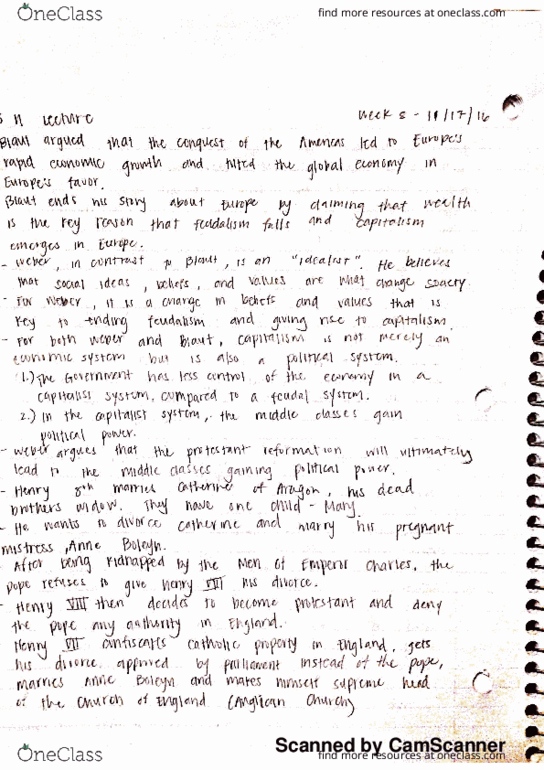 OneClass
find more resources at oneclass.com
S H Lecture
Week 8 - 11/17/16
Blaut argued that the conquest of the Americas led to Europe's
rapid economic growth and tilted the global economy in
Europe's favor.
Blaut ends his story about Europe by claiming that wealth
is the key reason that feudalism falls and capitalism
emerges in Europe.
- Weber, in contrast to Blaut, is an "idealist". He believes
that social ideas, beliefs, and values are what change society.
- For Weber, it is a change in beliefs and values that is
key to ending feudalism and giving rise to capitalism.
- For both Weber and Blaut, capitalism is not merely an
economic system but is also a political system.
1.) The Government has less control of the economy in a
capitalist system, compared to a feudal system.
2.) In the capitalist system, the middle classes gain
political power.
- Weber argues that the protestant reformation will ultimately
lead to the middle classes gaining political power.
- Henry 8th marries Catherine of Aragon, his dead
brothers widow. They have one child - Mary.
- He wants to divorce Catherine and marry his pregnant
mistress, Anne Boleyn.
- After being kidnapped by the Men of Emperor Charles, the
pope refuses to give Henry VIII his divorce.
- Henry VIII then decides to become protestant and deny
the pope any authority in England.
Henry VII confiscates Catholic property in England, gets
his divorce approved by parliament instead of the pope,
marries Anne Boleyn and makes himself supreme head
of the Church of England (Anglican Church)
Scanned by CamScanner
OneClass
find more resources at oneclass.com